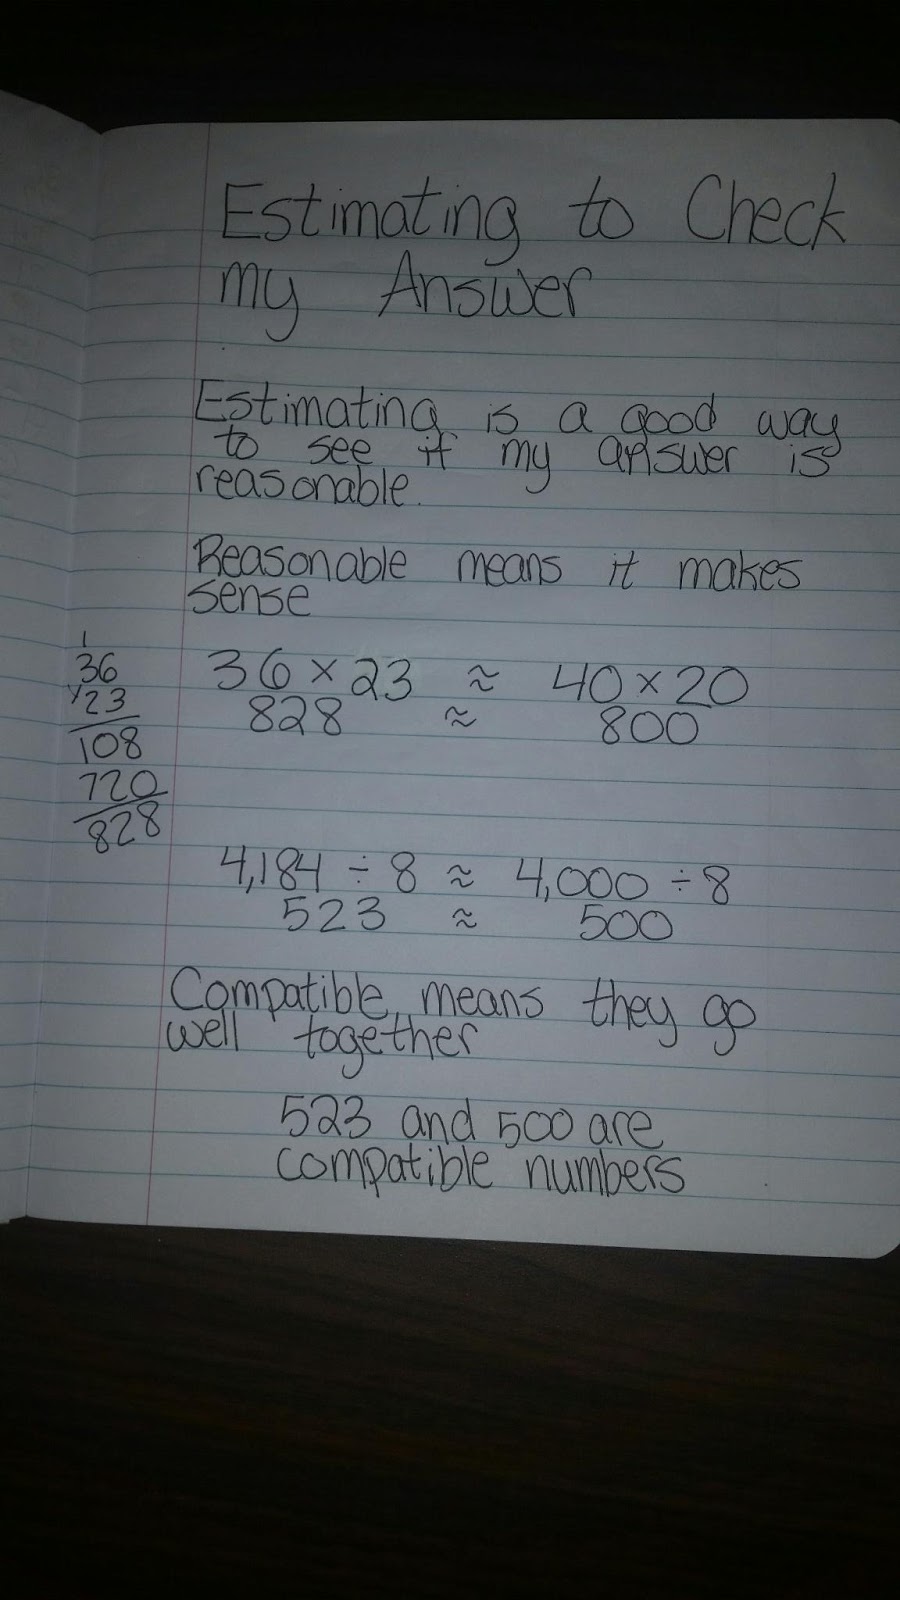 Estimating to Check
my Answer
Estimating is a good way
to see if my answer is
reasonable.
Reasonable means it makes
sense
1
36
×23
108
720
828
36 × 23 ≈ 40 × 20
828 ≈ 800
4,184 ÷ 8 ≈ 4,000 ÷ 8
523 ≈ 500
Compatible means they go
well together
523 and 500 are
compatible numbers